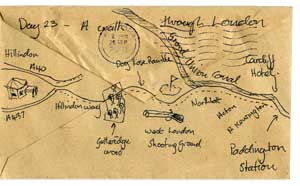 Day 23 - A walk through London
Hillindon
A40
Dog Rose Ramble
Grand Union Canal
Cardiff
Hotel
Hillindon Way
Northolt
Acton
N. Kensington
A437
Gutteridge
Wood
West London
Shooting Ground
Paddington
Station